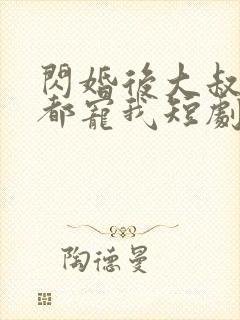 閃婚後大叔
都寵我短劇
陶德曼